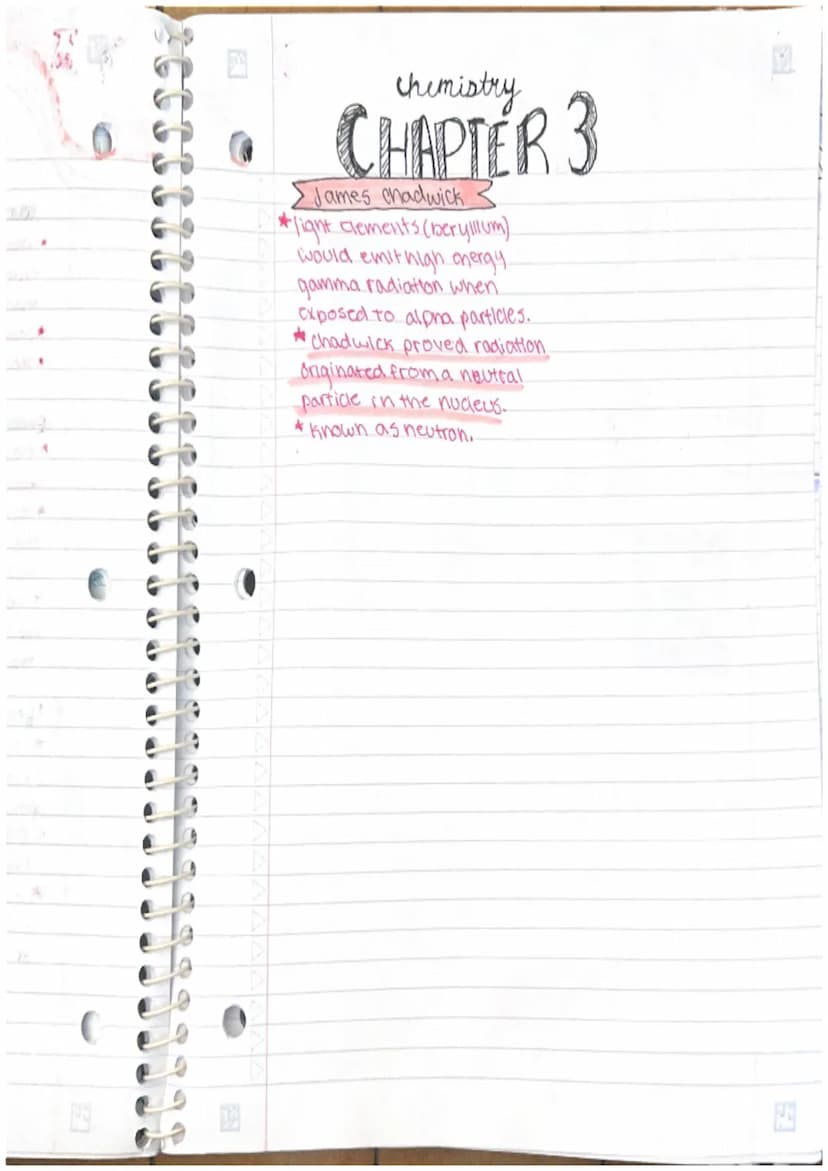 chemistry
CHAPTER 3
James Chadwick
*light elements (beryllium)
would emit high energy
gamma radiation when
exposed to alpha particles.
*Chadwick proved radiation
originated from a neutral
particle in the nucleus.
*known as neutron.